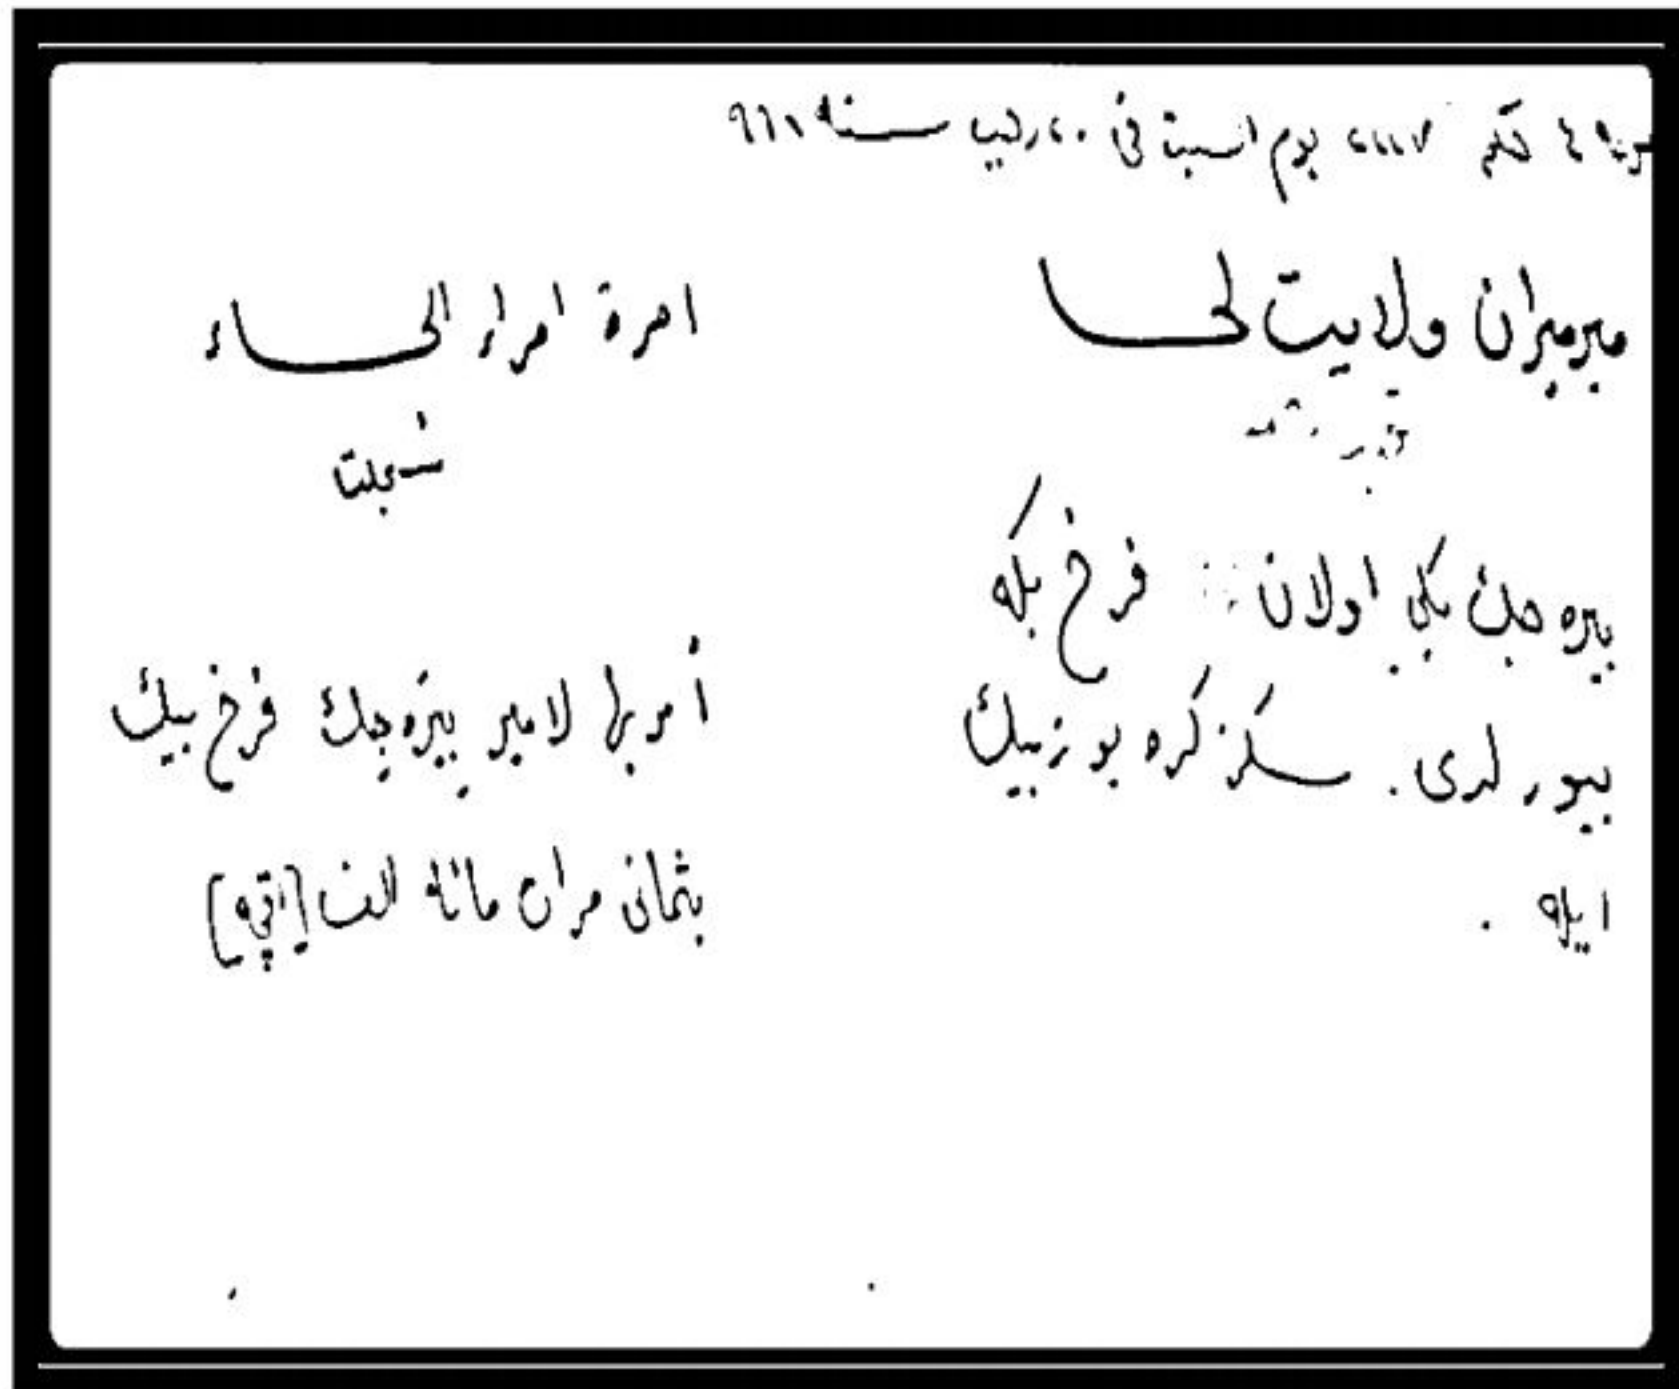 يوم السبت في ٢٠ رجب سنه ٩٦١
ميرميران ولايت لحسا
بيره جك بكى اولان فرخ بكه
بيورلدى. سكز كره يوز بيك
ايله .
امرة امراء الحساء
سجلت
أمر بها لامير بيره جك فرخ بيك
بثمان مرات مائة الف [اقچه]